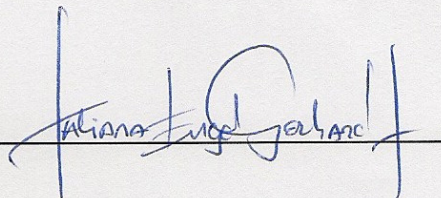 Tatiana Engel Gerhardt